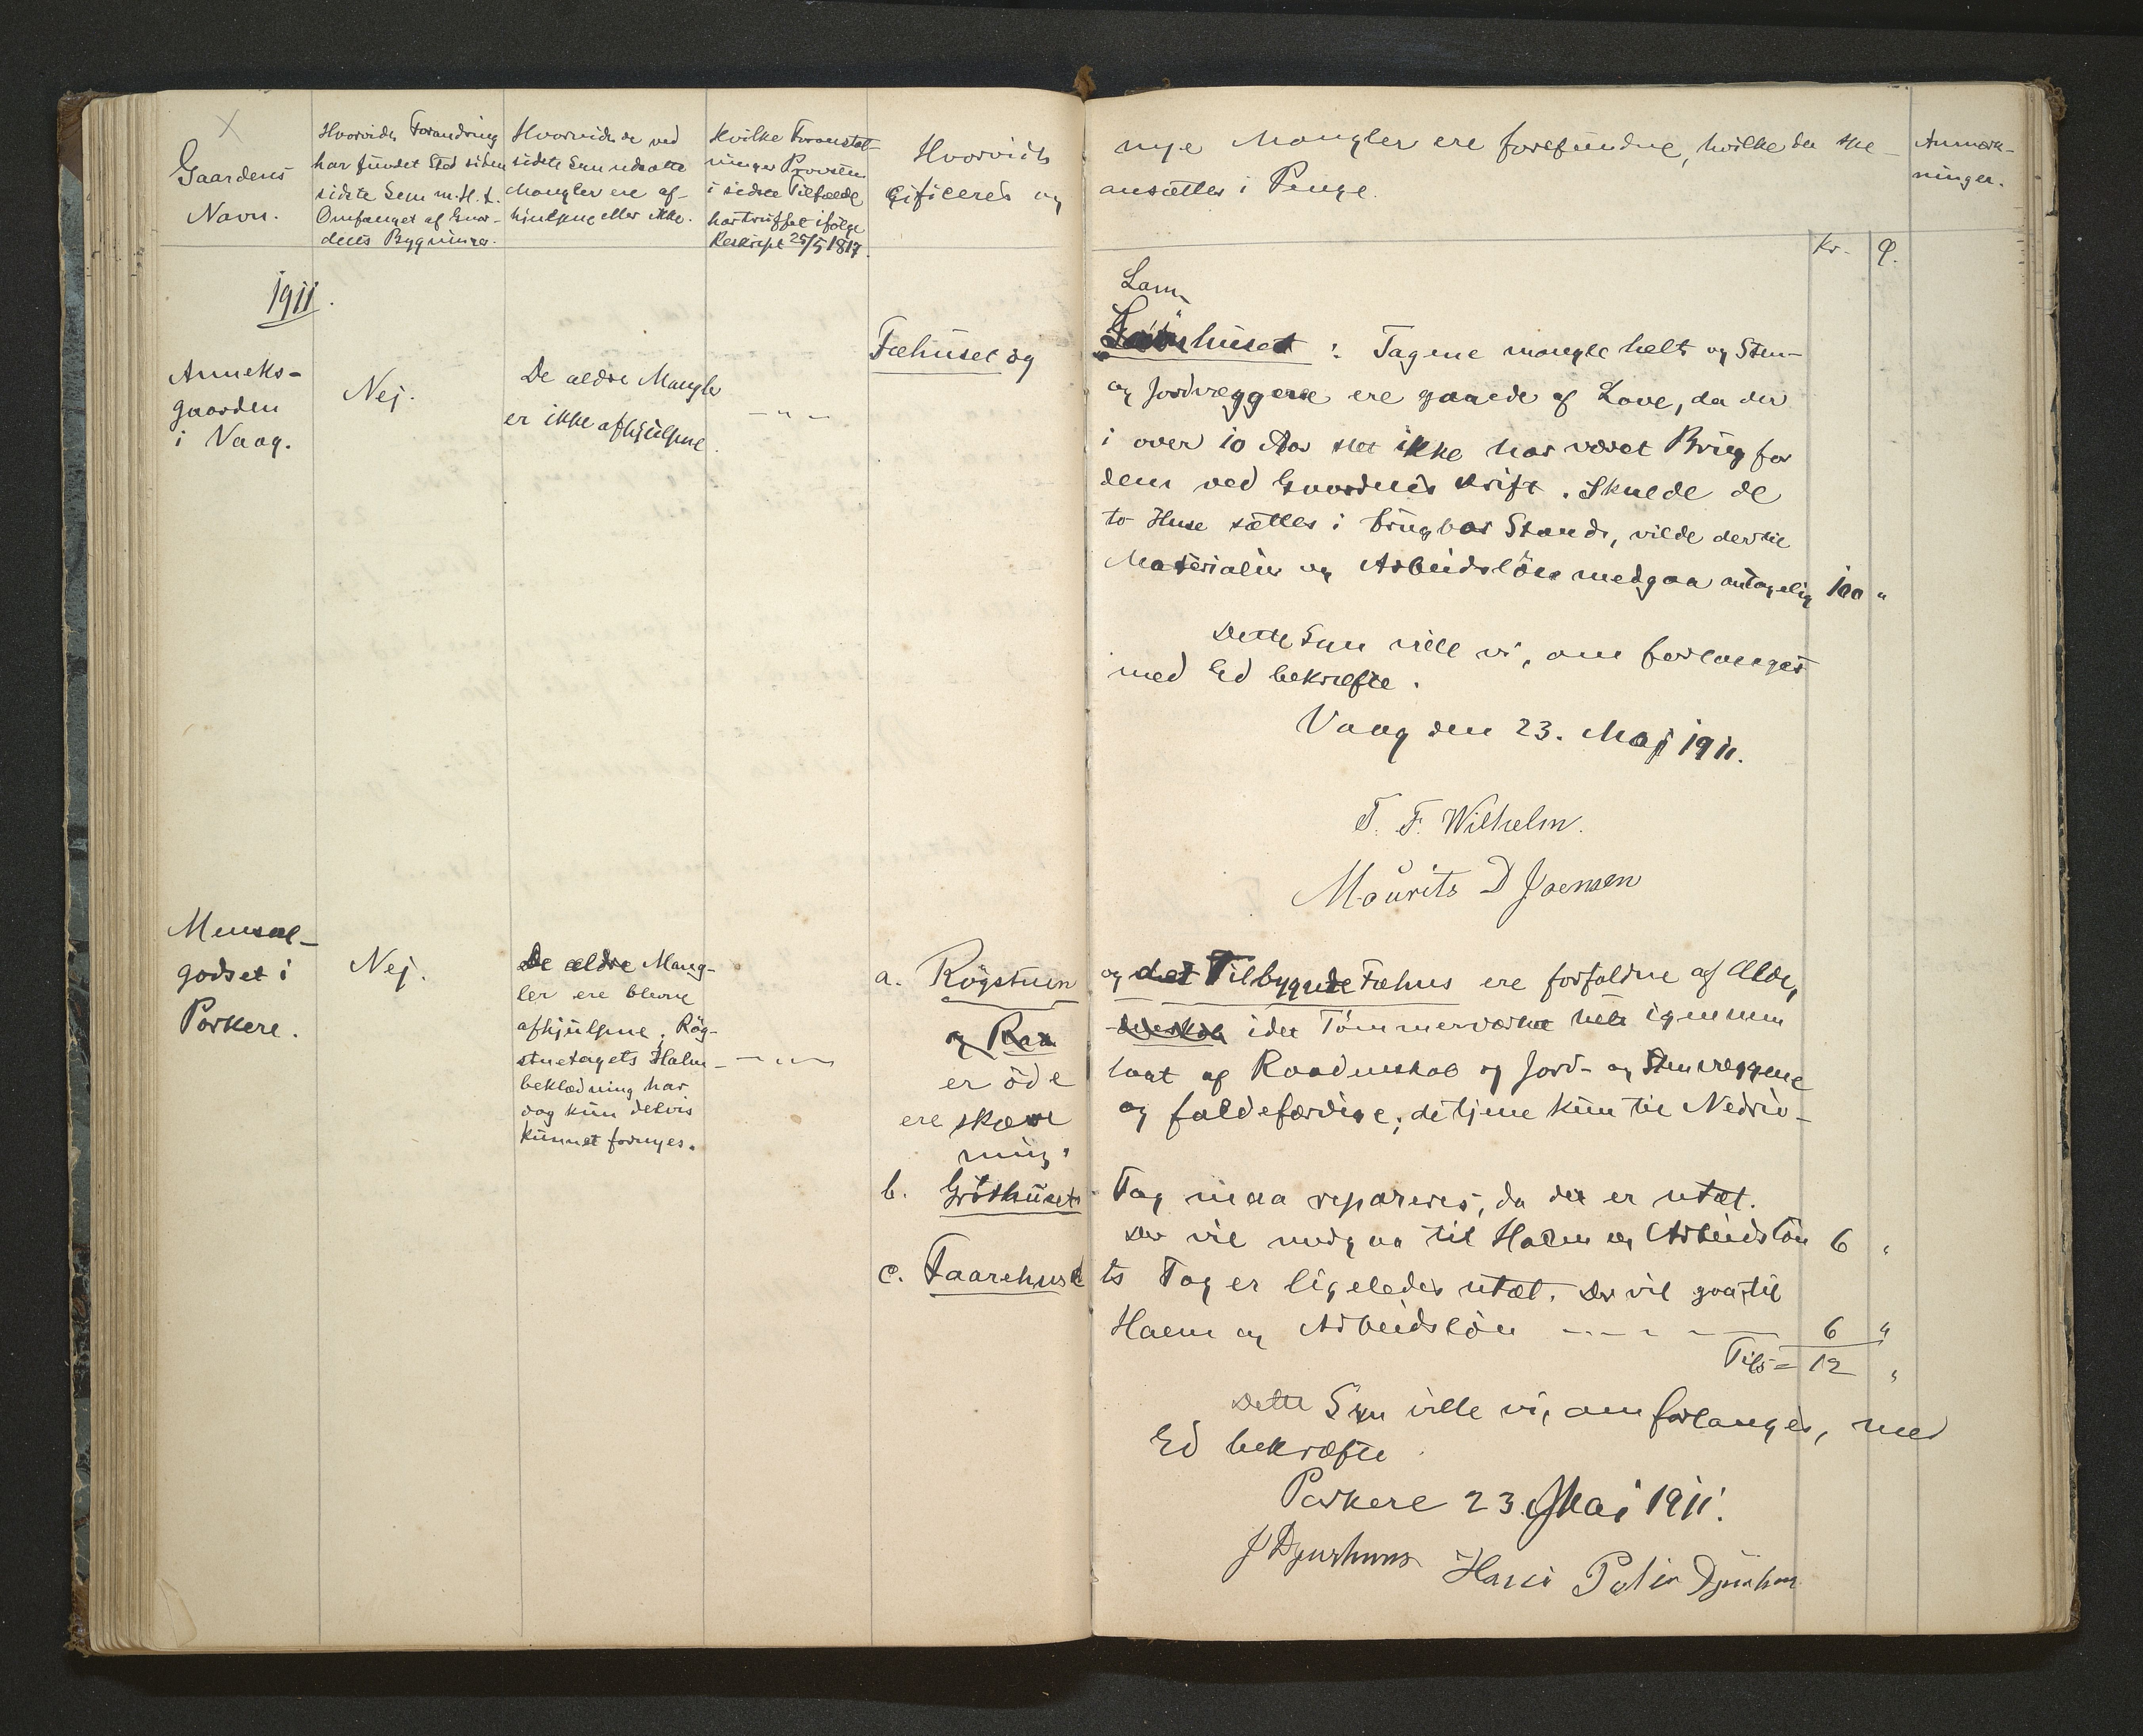 Gaardens
Navn.
Hvorvidt Forandring
har fundet Sted siden
sidste Syn m.H.t.
Omfanget af Gaar-
dens Bygninger.
Hvorvidt de ved
sidste Syn udsatte
Mangler ere af-
hjulpne eller ikke.
Hvilke Foranstalt-
ninger Provsten
i sidste Tilfælde
har truffet ifølge
Reskript 25/5 1817.
Hvorvidt
cificeres og
nye Mangler ere forefundne, hvilke da spe-
ansættes i Penge.
Anmærk-
ninger.
Kr. Ø.
1911.
Anneks-
gaarden
i Vaag.
Nej.
De ældre Mangler
er ikke afhjulpne.
— " —
Fæhuset og
Lam-
huset : Tagene mangle helt og Sten-
og Jordvæggene ere gaaede af Lave, da der
i over 10 Aar slet ikke har været Brug for
dem ved Gaardens Drift. Skulde de
to Huse sættes i brugbar Stand, vilde dertil
Materialier og Arbeidslön medgaa antagelig 100 "
Dette Syn ville vi, om forlanges
med Ed bekræfte.
Vaag den 23. Maj 1911.
T. F. Wilhelm.
Maurits D Joensen
Mensal-
godset i
Porkere.
Nej.
De ældre Mang-
ler ere blevne
afhjulpne; Røg-
stuetagets Halm-
beklædning har
dog kun delvis
kunnet fornyes.
— " —
a. Rögstuen og det Tilbyggede Fæhus ere forfaldne af Ælde,
idet Tømmerværket helt igennem
er öde lagt af Raadenskab og Jord- og Stenvæggene
ere skæve og faldefærdige; de tjene kun til Nedriv-
ning.
b. Gröthusets Tag maa repareres, da det er utæt.
Der vil medgaa til Halm og Arbeidslön 6 "
c. Faarehuse ts Tag er ligeledes utæt. Der vil gaa til
Halm og Arbeidslön - - - - 6 "
Tils = 12 "
Dette Syn ville vi, om forlanges, med
Ed bekræfte.
Porkere 23. Mai 1911.
J Djurhuus Hans Petur Djurhuus